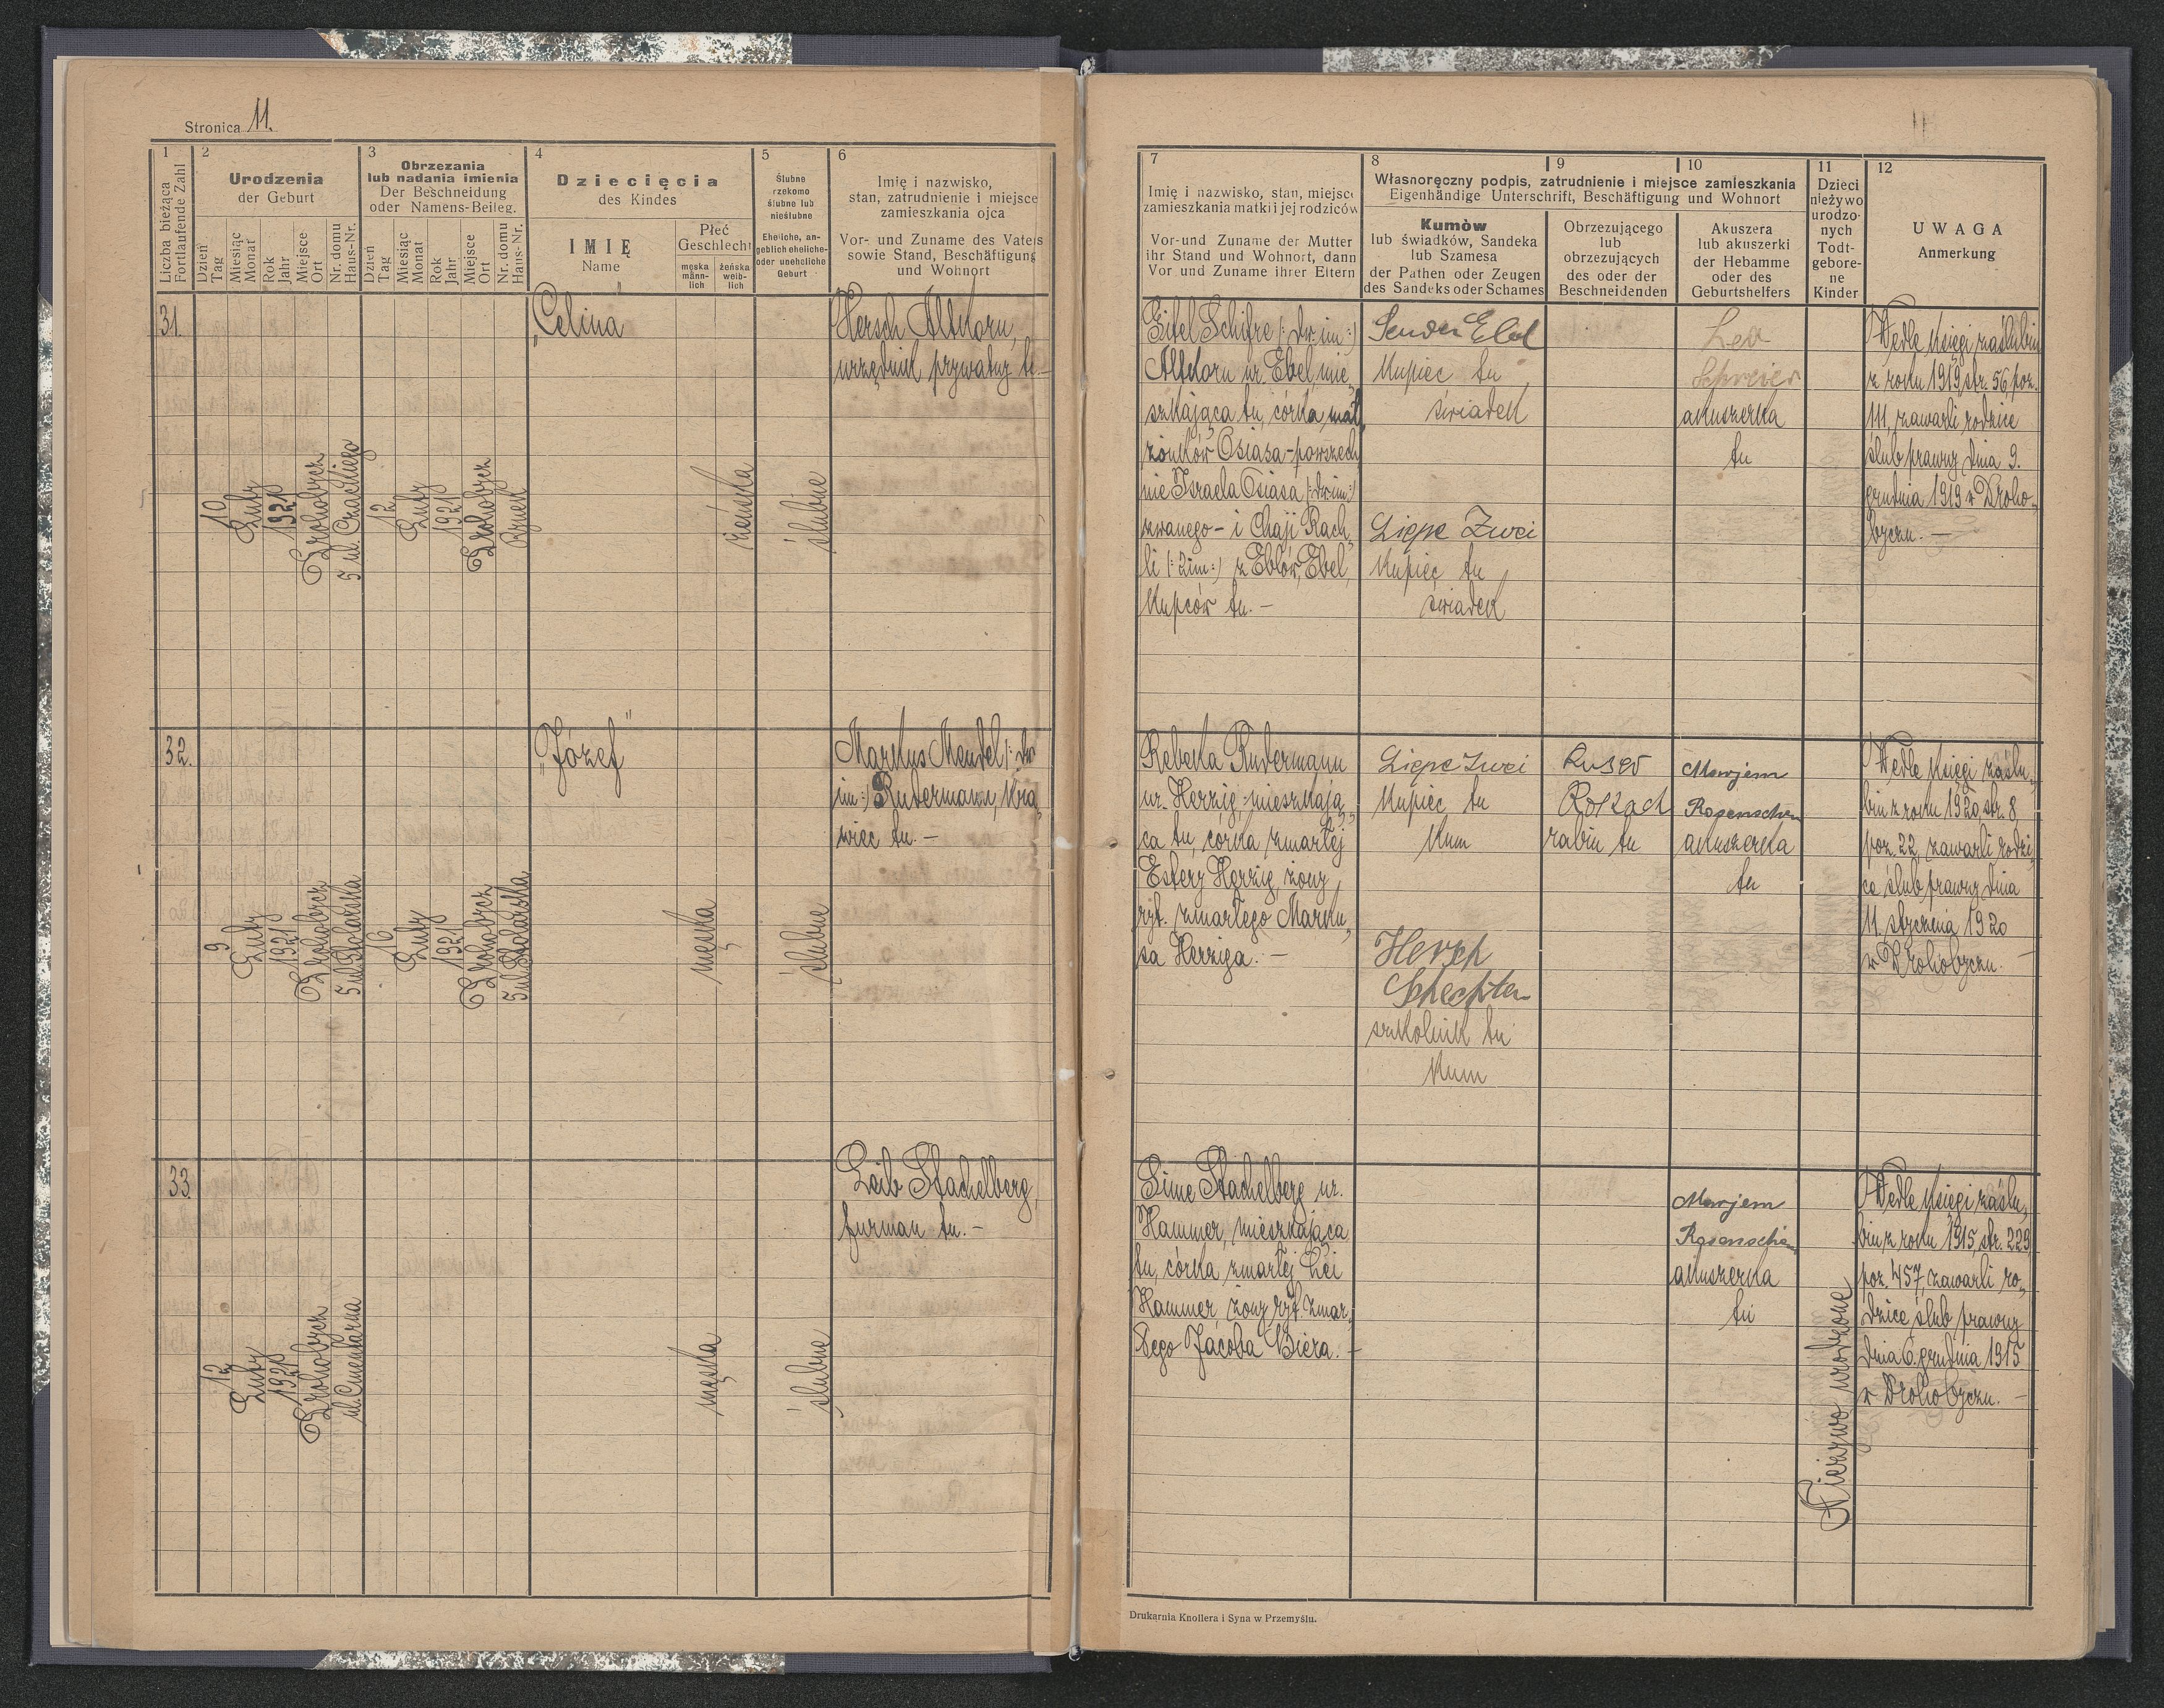 Stronica 11.
1
Liczba bieżąca
Fortlaufende Zahl
2
Urodzenia
der Geburt
Dzień
Tag
Miesiąc
Monat
Rok
Jahr
Miejsce
Ort
Nr. domu
Haus-Nr.
3
Obrzezania
lub nadania imienia
Der Beschneidung
oder Namens-Beileg.
Dzień
Tag
Miesiąc
Monat
Rok
Jahr
Miejsce
Ort
Nr. domu
Haus-Nr.
4
Dziecięcia
des Kindes
IMIĘ
Name
Płeć
Geschlecht
męska
männ-
lich
żeńska
weib-
lich
5
Ślubne
rzekomo
ślubne lub
nieślubne
Eheliche, an-
geblich eheliche-
oder uneheliche
Geburt
6
Imię i nazwisko,
stan, zatrudnienie i miejsce
zamieszkania ojca
Vor- und Zuname des Vaters
sowie Stand, Beschäftigung
und Wohnort
7
Imię i nazwisko, stan, miejsce
zamieszkania matki i jej rodziców
Vor-und Zuname der Mutter
ihr Stand und Wohnort, dann
Vor und Zuname ihrer Eltern
8
9
10
Własnoręczny podpis, zatrudnienie i miejsce zamieszkania
Eigenhändige Unterschrift, Beschäftigung und Wohnort
Kumòw
lub świadków, Sandeka
lub Szamesa
der Pathen oder Zeugen
des Sandeks oder Schames
Obrzezującego
lub
obrzezujących
des oder der
Beschneidenden
Akuszera
lub akuszerki
der Hebamme
oder des
Geburtshelfers
11
Dzieci
nieżywo
urodzo-
nych
Todt-
gebore-
ne
Kinder
12
UWAGA
Anmerkung
31.
10
Luty
1921
Drohobycz
5 ul. Czackiego
12
Luty
1921
Drohobycz
Rynek
„Celina"
żeńska
ślubne
Hersch Altkorn,
urzędnik prywatny tu.-
Eitel Schifre (: dw. im :)
Altkorn ur. Ebel mie„
szkająca tu, córka mał„
żonków Osiasa-powszech„
nie Israela Osiasa (: dw. im :)
zwanego- i Chaji Rach„
li (: 2im :) z Eblów, Ebel,
kupców tu.-
Sender Ebel
kupiec tu
świadek
Liepe Zwei
kupiec tu
świadek
Lea
Schreier
akuszerka
tu
Wedle księgi zaślubin
z roku 1919, str. 56, poz.
111, zawarli rodzice
ślub prawny dnia 9.
grudnia 1919 w Droho„
byczu.-
32.
9
Luty
1921
Drohobycz
5 ul. Stolarska
16
Luty
1921
Drohobycz
5 ul. Stolarska
„Józef"
męska
ślubne
Markus Mendel (: dw.
im :) Rudermann, kra„
wiec tu.-
Rebeka Rudermann
ur. Herzig, mieszkają„
ca tu, córka zmarłej
Estery Herzig, żony
ryt. zmarłego Marku„
sa Herziga.-
Liepe Zwei
kupiec tu
kum
Hersch
Schechter
szkolnik tu
kum
Rokach
rabin tu
Marjem
Rosenschein
akuszerka
tu
Wedle księgi zaślu„
bin z roku 1920, str. 8,
poz. 22, zawarli rodzi„
ce ślub prawny dnia
11. stycznia 1920
w Drohobyczu.-
33.
12
Luty
1921
Drohobycz
ul. Cmentarna
męska
ślubne
Leib Stachelberg,
furman tu.-
Sime Stachelberg ur.
Hammer, mieszkająca
tu, córka zmarłej Lei
Hammer, żony ryt. zmar„
łego Jacoba Biera.-
Marjem
Rosenschein
akuszerka
tu
Nieżywo urodzone
Wedle księgi zaślu„
bin z roku 1915, str. 229
poz. 457, zawarli ro„
dzice ślub prawny
dnia 6. grudnia 1915
w Drohobyczu.-
Drukarnia Knollera i Syna w Przemyślu.